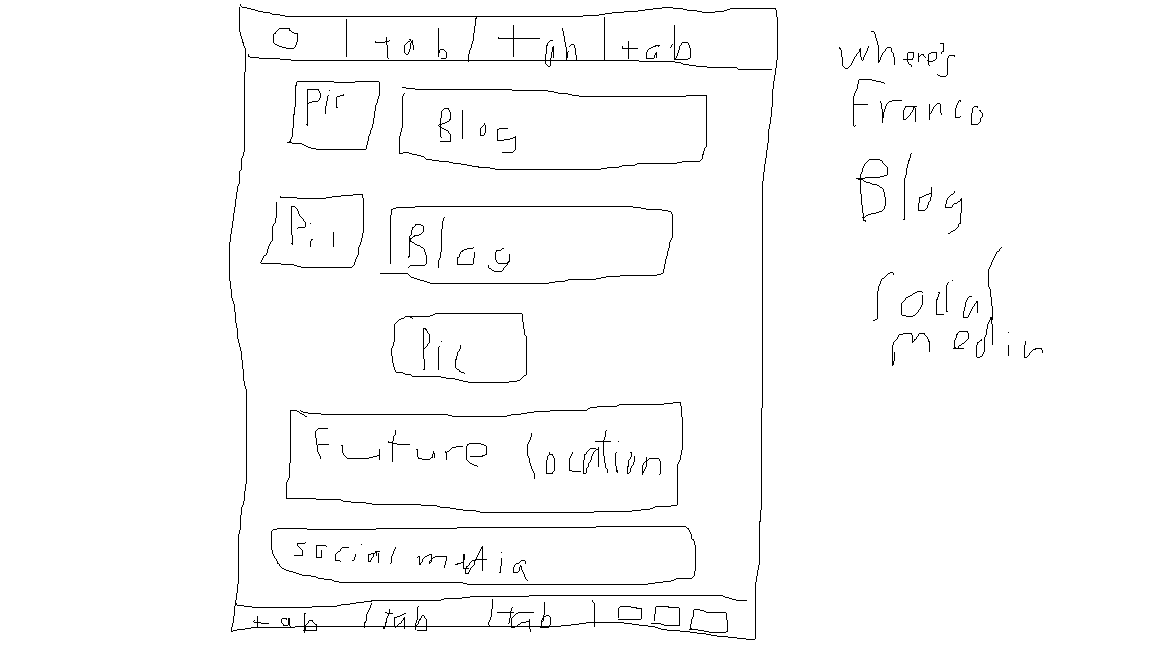 tab tab tab
Pic Blog
Pic Blog
Pic
Future location
social media
tab tab tab
where's
Franco
Blog
social
media